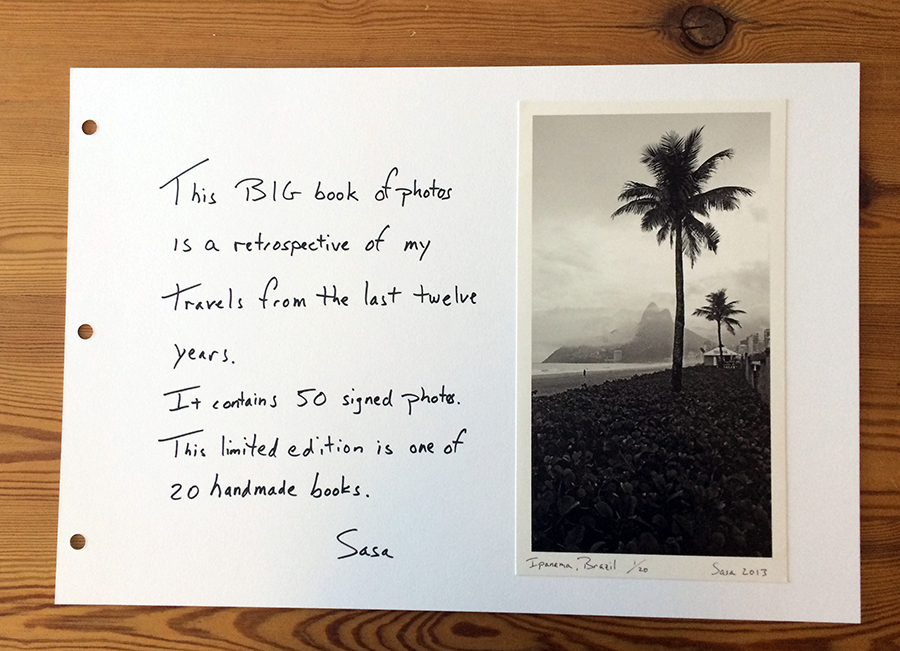 This BIG book of photos
is a retrospective of my
Travels from the last twelve
years.
It contains 50 signed photos.
This limited edition is one of
20 handmade books.
Sasa
Ipanema, Brazil 1/20 Sasa 2013